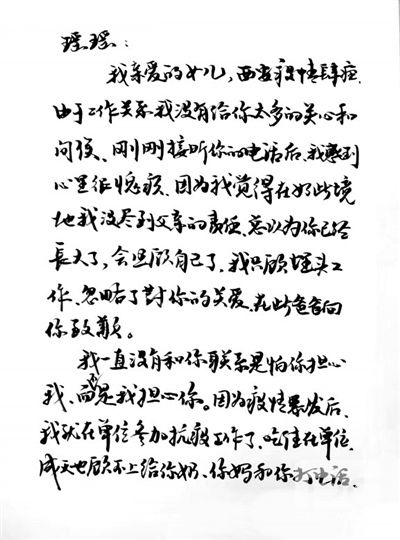 瑶瑶：
我亲爱的女儿，西安疫情肆疟.
由于工作关系我没有给你太多的关心和
问侯、刚刚接听你的电话后、我感到
心里很愧疚、因为我觉得在如此境
地我没尽到父亲的责任、总以为你已经
長大了，会照顾自己了、我只顾埋头工
作、忽略了對你的关爱、在此爸爸向
你致歉。
我一直没有和你联系是怕你担心
我、而不是我担心你。因为疫情暴发后、
我就在单位参加抗疫工作了、吃住在单位.
成天也顾不上给你奶、你妈和你打电话、